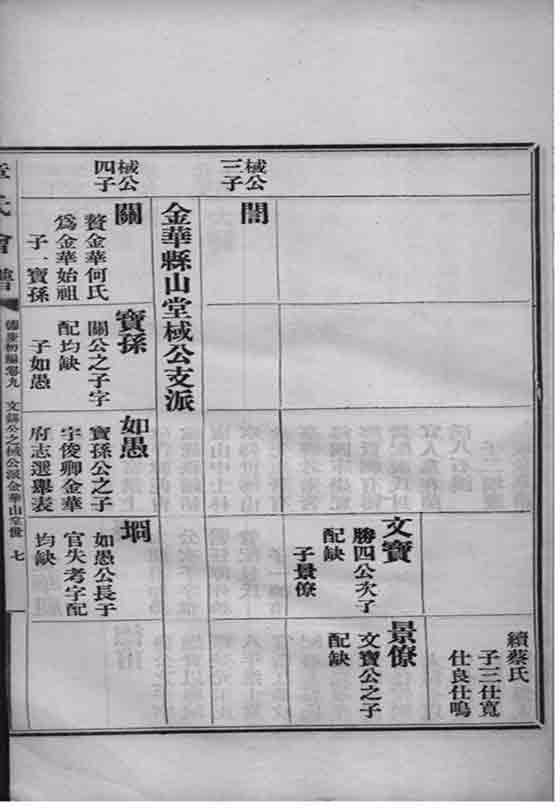 續蔡氏
子三仕寬
仕良仕鳴
文寶
勝四公次子
配缺
子景僚
景僚
文寶公之子
配缺
械公
三子
闇
金華縣山堂械公支派
械公
四子
關
贅金華何氏
爲金華始祖
子一寶孫
寶孫
關公之子字
配均缺
子如愚
如愚
寶孫公之子
字俊卿金華
府志選舉表
堈
如愚公長子
官失考字配
均缺
章氏會譜
德慶初編卷九
文錦公之械公派金華山堂世
七